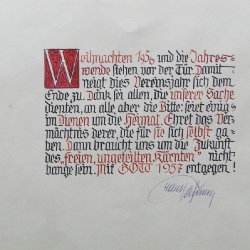 Weihnachten 1956 und die Jahres=
wende stehen vor der Tür. Damit
neigt dies Vereinsjahr sich dem
Ende zu. Dank sei allen, die unserer Sache
dienten, an alle aber die Bitte: seiet einig
im Dienen um die Heimat. Ehret das Ver
mächtnis derer, die für sie sich selbst ga=
ben. Dann braucht uns um die Zukunft
des „freien, ungeteilten Kärnten" nicht
bange sein. Mit GOTT 1957 entgegen!